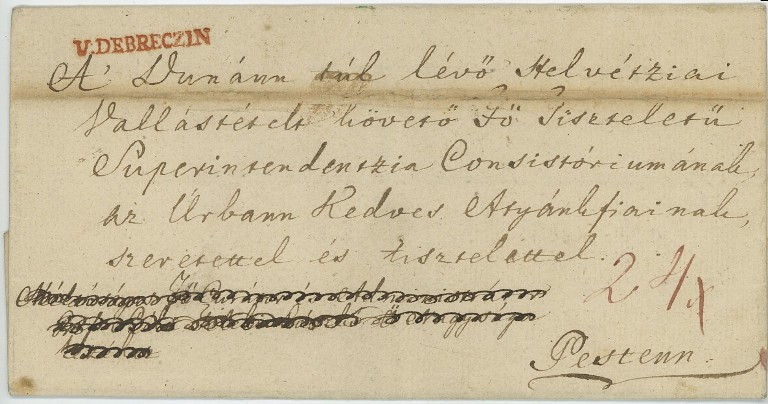 V. DEBRECZIN
A' Dunánn túl lévő Helvétziai
Vallástételt követő Fő Tiszteletű
Superintendentzia Consistóriumának,
az Úrbann Kedves Atyánkfiainak,
szeretettel és tisztelettel.
24 x
Pestenn